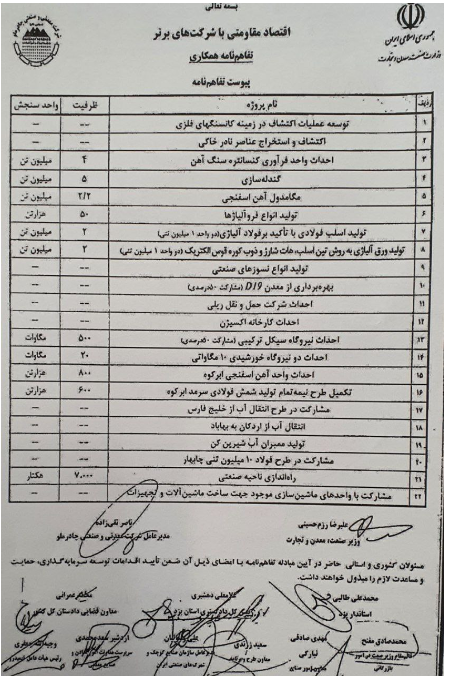 بسمه تعالی
اقتصاد مقاومتی با شرکت‌های برتر
تفاهم‌نامه همکاری
پیوست تفاهم‌نامه
جمهوری اسلامی ایران
وزارت صنعت، معدن و تجارت
ردیف نام پروژه ظرفیت واحد سنجش
۱ توسعه عملیات اکتشاف در زمینه کانسنگهای فلزی -- --
۲ اکتشاف و استخراج عناصر نادر خاکی -- --
۳ احداث واحد فرآوری کنسانتره سنگ آهن ۴ میلیون تن
۴ گندله‌سازی ۵ میلیون تن
۵ مگامدول آهن اسفنجی ۲/۲ میلیون تن
۶ تولید انواع فروآلیاژها ۵۰ هزارتن
۷ تولید اسلب فولادی با تأکید بر فولاد آلیاژی (دو واحد ۱ میلیون تنی) ۲ میلیون تن
۸ تولید ورق آلیاژی به روش تین اسلب، هات شارژ و ذوب کوره قوس الکتریک (دو واحد ۱ میلیون تنی) ۲ میلیون تن
۹ تولید انواع نسوزهای صنعتی -- --
۱۰ بهره‌برداری از معدن D19 (مشارکت ۵۰درصدی) -- --
۱۱ احداث شرکت حمل و نقل ریلی -- --
۱۲ احداث کارخانه اکسیژن -- --
۱۳ احداث نیروگاه سیکل ترکیبی (مشارکت ۵۰درصدی) ۵۰۰ مگاوات
۱۴ احداث دو نیروگاه خورشیدی ۱۰ مگاواتی ۲۰ مگاوات
۱۵ احداث واحد آهن اسفنجی ابرکوه ۸۰۰ هزارتن
۱۶ تکمیل طرح نیمه‌تمام تولید شمش فولادی سرمد ابرکوه ۶۰۰ هزارتن
۱۷ مشارکت در طرح انتقال آب از خلیج فارس -- --
۱۸ انتقال آب از اردکان به بهاباد -- --
۱۹ تولید ممبران آب شیرین کن -- --
۲۰ مشارکت در طرح فولاد ۱۰ میلیون تنی چابهار -- --
۲۱ راه‌اندازی ناحیه صنعتی ۷.۰۰۰ هکتار
۲۲ مشارکت با واحدهای ماشین‌سازی موجود جهت ساخت ماشین‌آلات و تجهیزات -- --
علیرضا رزم‌حسینی
وزیر صنعت، معدن و تجارت
ناصر تقی‌زاده
مدیرعامل شرکت معدنی و صنعتی چادرملو
مسئولان کشوری و استانی حاضر در آیین مبادله تفاهم‌نامه با امضای ذیل آن ضمن تأیید اقدامات توسعه سرمایه‌گذاری، حمایت
و مساعدت لازم را مبذول خواهند داشت.
محمدعلی طالبی
استاندار یزد
غلامعلی دهشیری
دادگستری استان یزد
معاون قضایی دادستان کل کشور
محمدصادق مفتح
بازرگانی
مهدی صادقی نیارکی
سعید زرندی
معاون طرح و برنامه
شهرک‌های صنعتی ایران